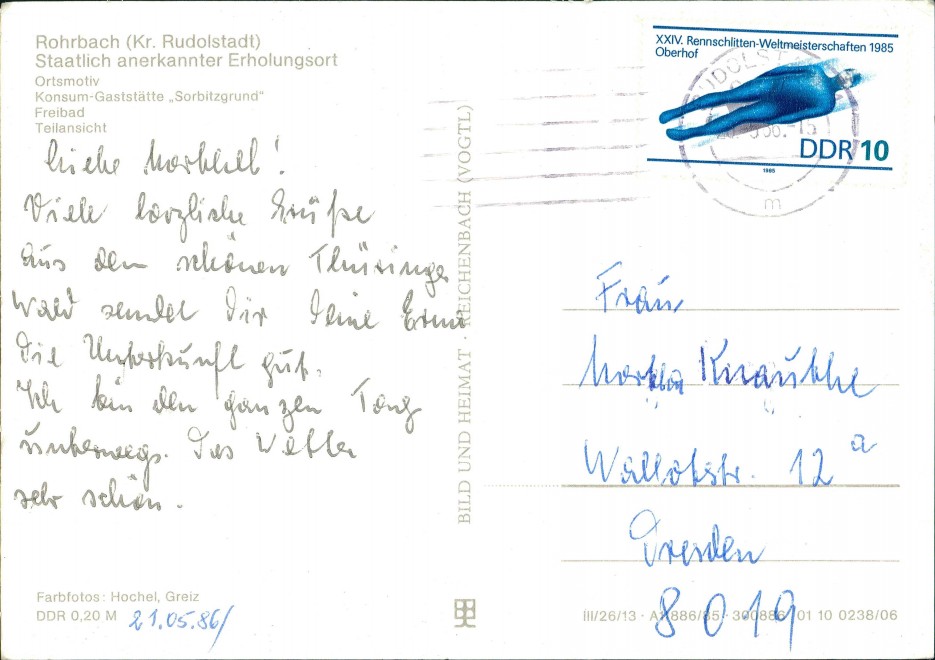 Rohrbach (Kr. Rudolstadt)
Staatlich anerkannter Erholungsort
Ortsmotiv
Konsum-Gaststätte „Sorbitzgrund"
Freibad
Teilansicht
Liebe
Viele herzliche Grüße
aus dem schönen Thüringe
Wald sendet Dir Deine
Die Unterkunft gut.
Ich bin den ganzen Tag
unterwegs. Das Wetter
sehr schön.
Farbfotos: Hochel, Greiz
DDR 0,20 M 21.05.86/
BILD UND HEIMAT · REICHENBACH (VOGTL)
XXIV. Rennschlitten-Weltmeisterschaften 1985
Oberhof
DDR 10
1985
m
Frau
Knauthe
Wallotstr. 12 a
Dresden
8019
III/26/13 · 01 10 0238/06